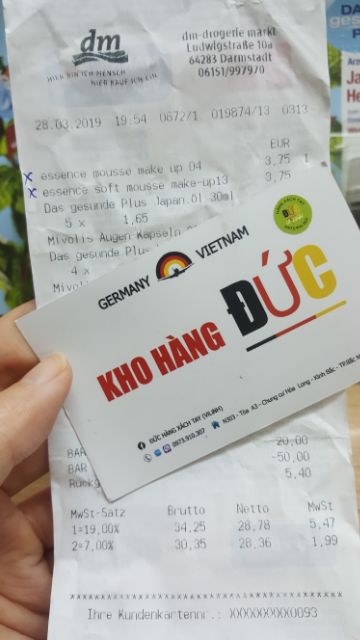 dm
HIER BIN ICH MENSCH
HIER KAUF ICH EIN
dm-drogerie markt
Ludwigstraße 10a
64283 Darmstadt
06151/997970
28.03.2019 19:54 0672/1 019874/13 0313
EUR
x essence mousse make up 04 3,75 1
x essence soft mousse make-up13 3,75
Das gesunde Plus Japan.Öl 30ml
5 x 1,65
Mivolis Augen Kapseln
Das gesunde Plus
4 x
Mivol
GERMANY VIETNAM
HÀNG XÁCH TAY
ĐỨC
KHO HÀNG ĐỨC
ĐỨC HÀNG XÁCH TAY (VILINH)
0973.910.307
N303 - Tòa A3 - Chung cư Hòa Long - Kinh Bắc - TP.Bắc N
BAR 20,00
BAR -50,00
Rückg 5,40
MwSt-Satz Brutto Netto MwSt
1=19,00% 34,25 28,78 5,47
2=7,00% 30,35 28,36 1,99
************************************
Ihre Kundenkartennr.: XXXXXXXXX0093